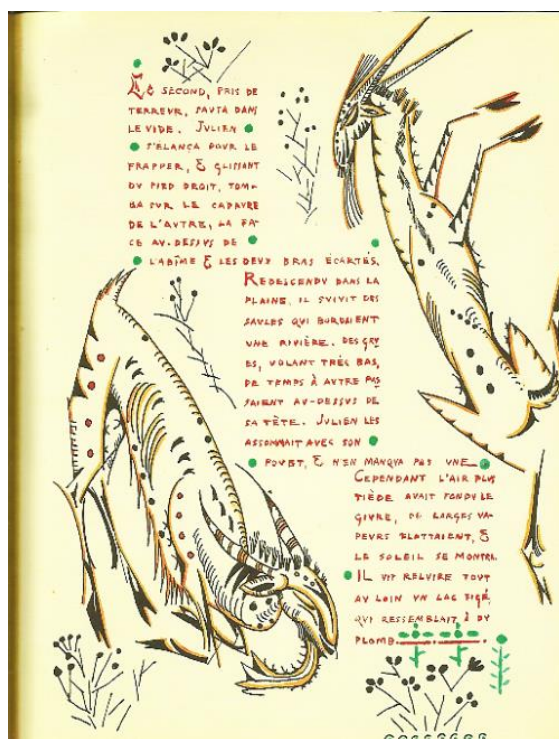 LE SECOND, PRIS DE
TERREUR, SAUTA DANS
LE VIDE. JULIEN
S'ÉLANÇA POUR LE
FRAPPER, & GLISSANT
DU PIED DROIT, TOM-
BA SUR LE CADAVRE
DE L'AUTRE, LA FA-
CE AU-DESSUS DE
L'ABÎME & LES DEUX BRAS ÉCARTÉS.
REDESCENDU DANS LA
PLAINE, IL SUIVIT DES
SAULES QUI BORDAIENT
UNE RIVIÈRE. DES GRU
ES, VOLANT TRÉS BAS,
DE TEMPS À AUTRE PAS
SAIENT AU-DESSUS DE
SA TÊTE. JULIEN LES
ASSOMMAIT AVEC SON
FOUET, & N'EN MANQUA PAS UNE.
CEPENDANT L'AIR PLUS
TIÈDE AVAIT FONDU LE
GIVRE, DE LARGES VA-
PEURS FLOTTAIENT, &
LE SOLEIL SE MONTRA.
IL VIT RELUIRE TOUT
AU LOIN UN LAC FIGÉ,
QUI RESSEMBLAIT À DU
PLOMB.